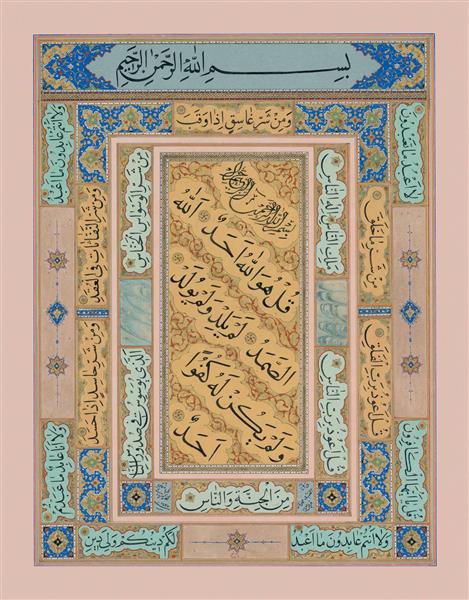 بِسْمِ اللهِ الرَّحْمٰنِ الرَّحِيمِ
قل يا ايها الكافرون
لا اعبد ما تعبدون
ولا انتم عابدون ما اعبد
ولا انا عابد ما عبدتم
ولا انتم عابدون ما اعبد
لكم دينكم ولي دين
قل اعوذ برب الفلق
من شر ما خلق
ومن شر غاسق اذا وقب
ومن شر النفاثات في العقد
ومن شر حاسد اذا حسد
قل اعوذ برب الناس
ملك الناس اله الناس
من شر الوسواس الخناس
الذي يوسوس في صدور الناس
من الجنة والناس
بسم الله الرحمن الرحيم
قل هو الله احد الله
الصمد لم يلد ولم يولد
ولم يكن له كفوا
احد